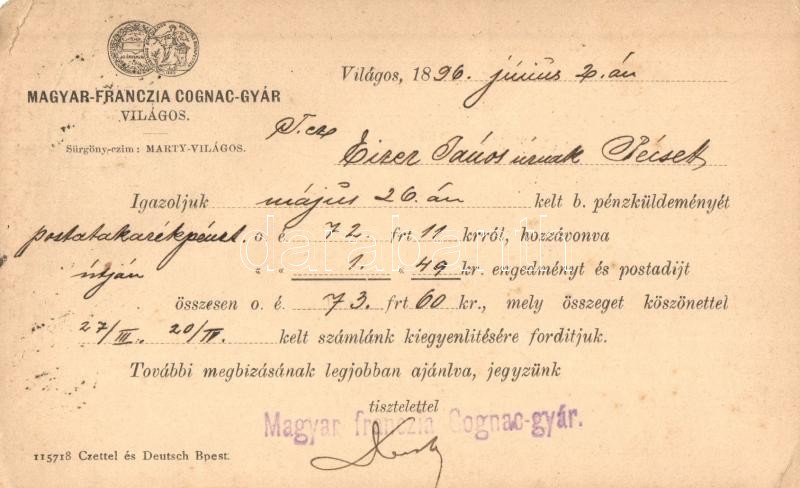 MAGYAR-FRANCZIA COGNAC-GYÁR
VILÁGOS.
Sürgöny-czim: MARTY-VILÁGOS.
Világos, 1896. június 2.án
T. cz
Eizer János úrnak Pécsett
Igazoljuk május 26.án kelt b. pénzküldeményét
postatakarékpénzt. o. é. 72. frt 11 krról, hozzávonva
útján „ „ 1. „ 49 kr. engedményt és postadijt
összesen o. é. 73. frt 60 kr., mely összeget köszönettel
27/III. 20/IV. kelt számlánk kiegyenlitésére forditjuk.
További megbizásának legjobban ajánlva, jegyzünk
tisztelettel
Magyar franczia Cognac-gyár.
115718 Czettel és Deutsch Bpest.
darabanth